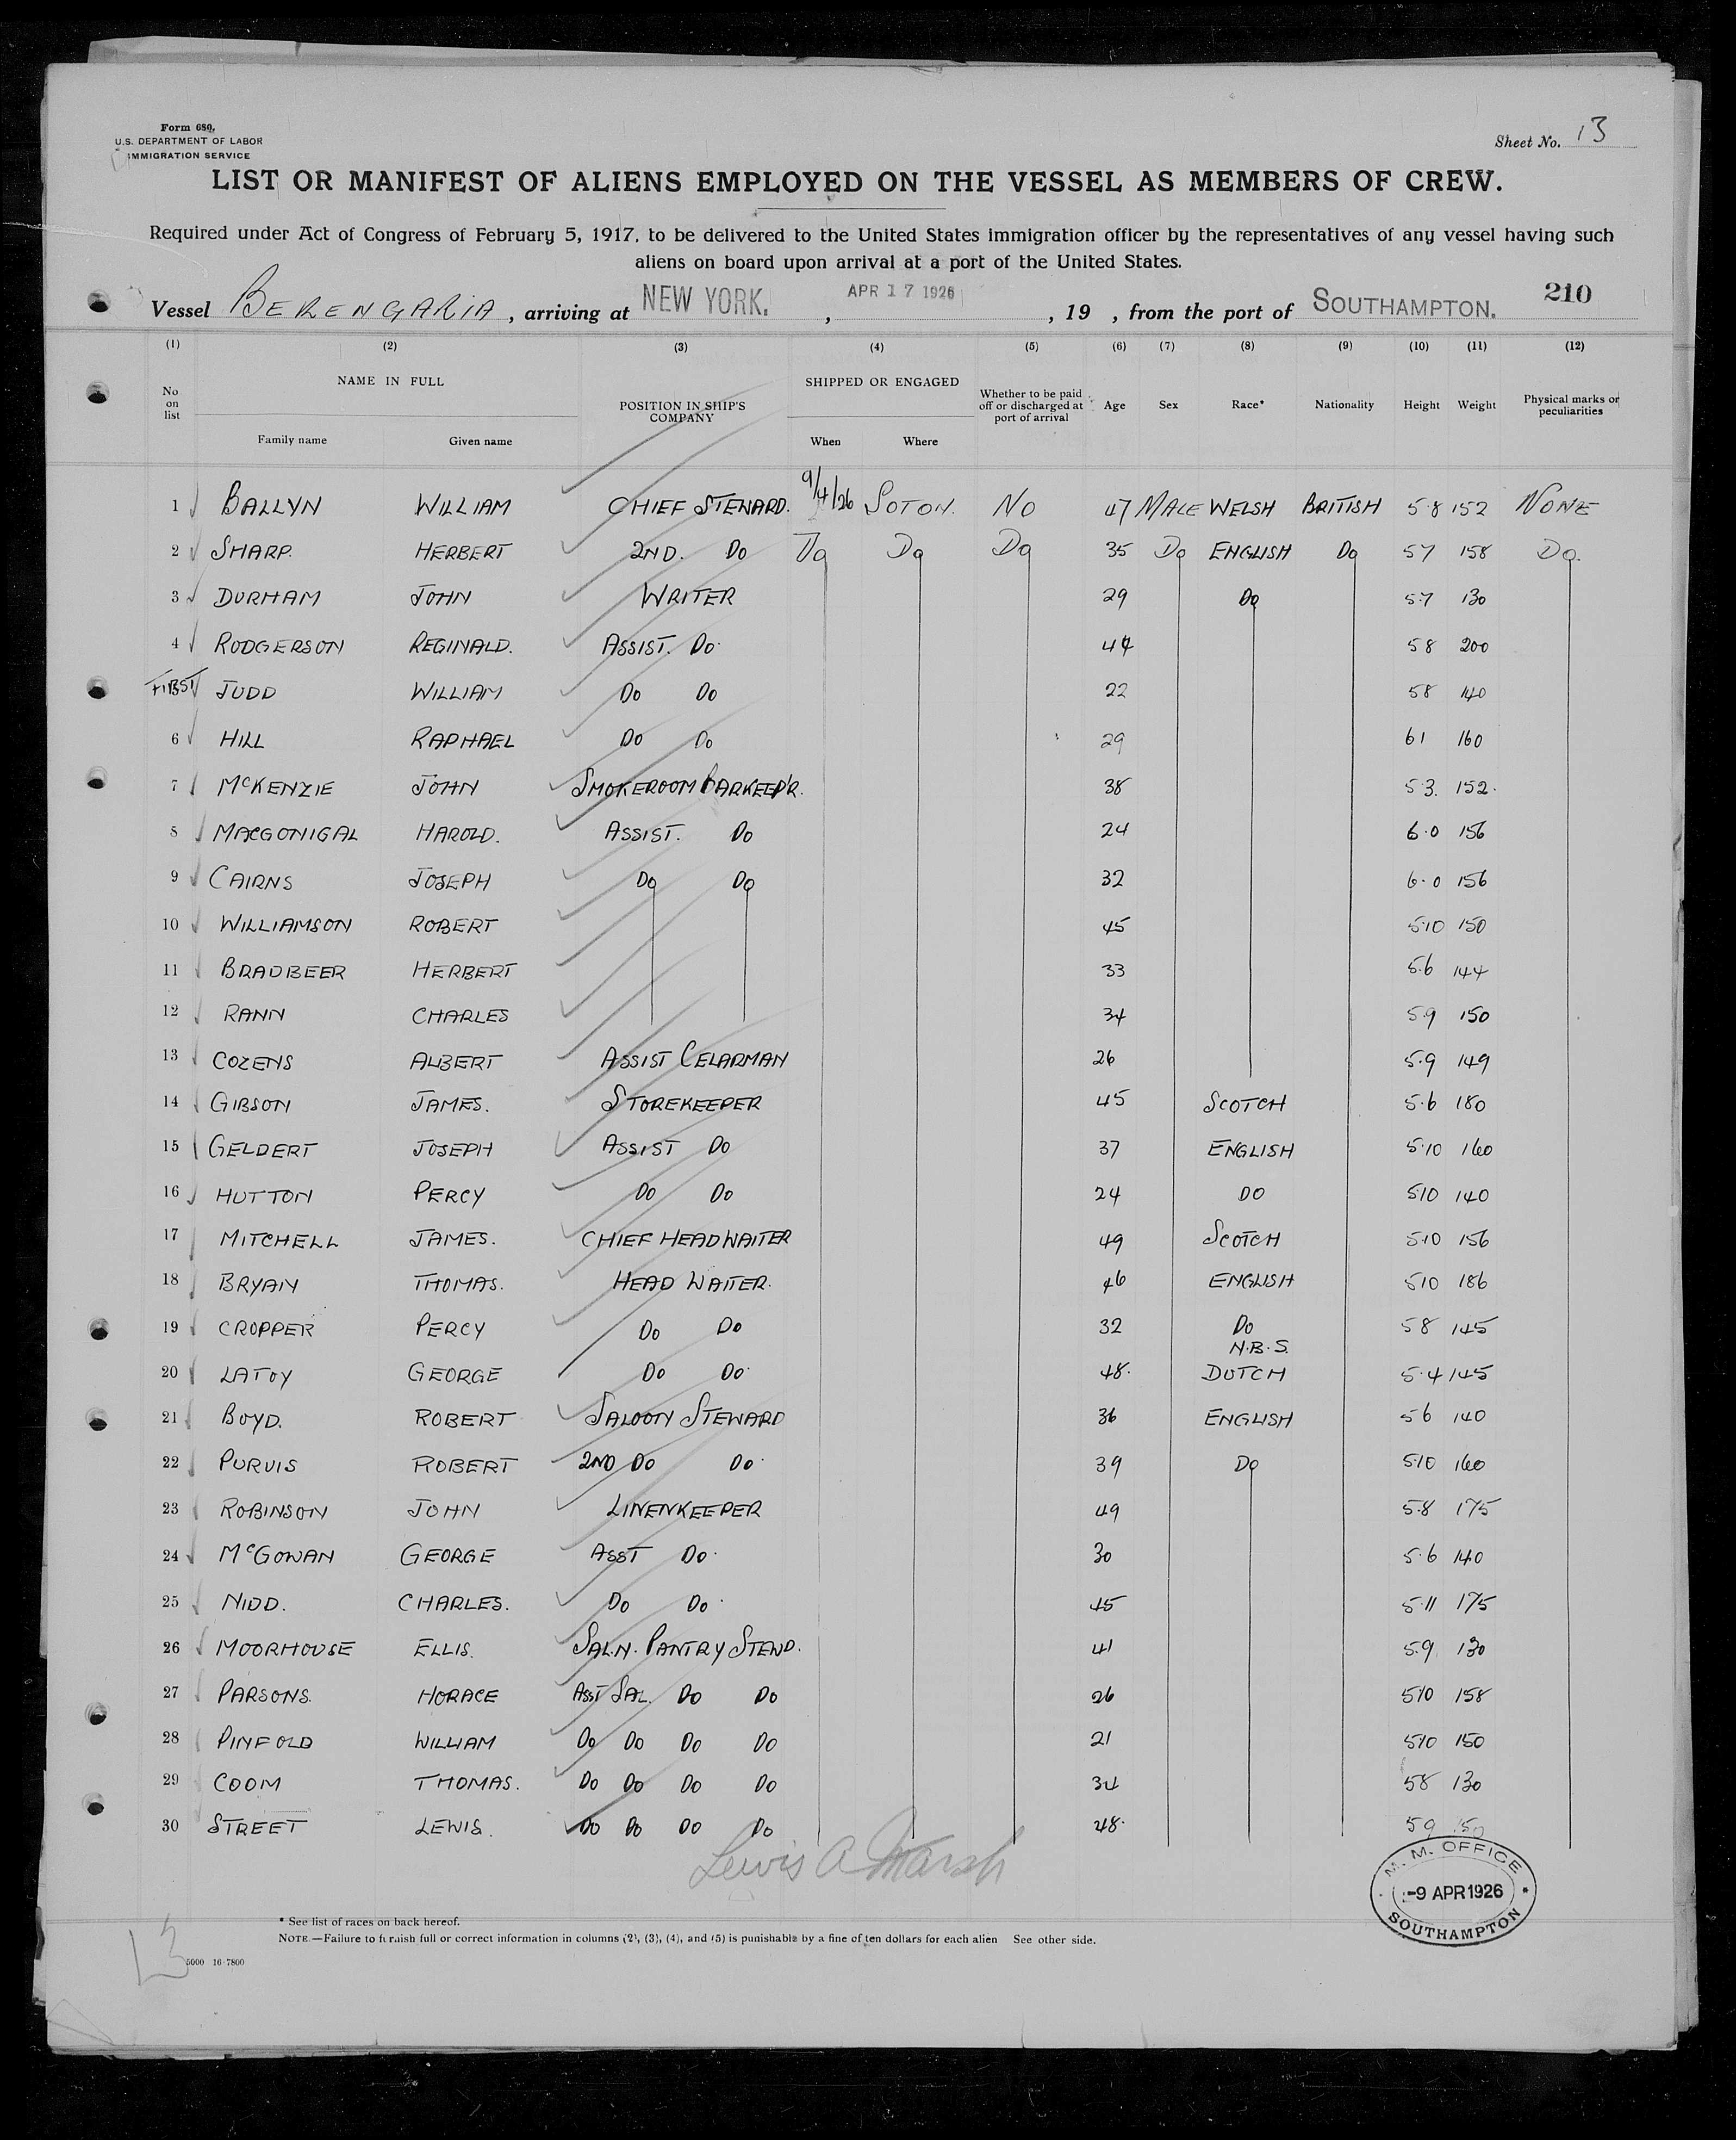 Form 680.
U.S. DEPARTMENT OF LABOR
IMMIGRATION SERVICE
Sheet No. 13
LIST OR MANIFEST OF ALIENS EMPLOYED ON THE VESSEL AS MEMBERS OF CREW.
Required under Act of Congress of February 5, 1917, to be delivered to the United States immigration officer by the representatives of any vessel having such
aliens on board upon arrival at a port of the United States.
Vessel BERENGARIA, arriving at NEW YORK. , APR 17 1926 , 19 , from the port of SOUTHAMPTON. 210
(1) (2) (3) (4) (5) (6) (7) (8) (9) (10) (11) (12)
No on list NAME IN FULL Family name Given name POSITION IN SHIP'S COMPANY SHIPPED OR ENGAGED When Where Whether to be paid off or discharged at port of arrival Age Sex Race* Nationality Height Weight Physical marks or peculiarities
1 BALLYN WILLIAM CHIEF STEWARD. 9/4/26 SOTON. NO 47 MALE WELSH BRITISH 5.8 152 NONE
2 SHARP. HERBERT 2ND. DO DO DO DO 35 DO ENGLISH DO 57 158 DO.
3 DURHAM JOHN WRITER 29 DO 5.7 130
4 RODGERSON REGINALD. ASSIST. DO. 44 58 200
FIRST 5 JUDD WILLIAM DO DO 22 58 140
6 HILL RAPHAEL DO DO 29 61 160
7 McKENZIE JOHN SMOKEROOM BARKEEP'R. 38 5.3. 152.
8 MACGONIGAL HAROLD. ASSIST. DO 24 6.0 156
9 CAIRNS JOSEPH DO DO 32 6.0 156
10 WILLIAMSON ROBERT 45 5.10 150
11 BRADBEER HERBERT 33 5.6 144
12 RANN CHARLES 34 5.9 150
13 COZENS ALBERT ASSIST CELARMAN 26 5.9 149
14 GIBSON JAMES. STOREKEEPER 45 SCOTCH 5.6 180
15 GELDERT JOSEPH ASSIST DO 37 ENGLISH 5.10 160
16 HUTTON PERCY DO DO 24 DO 510 140
17 MITCHELL JAMES. CHIEF HEADWAITER 49 SCOTCH 5.10 156
18 BRYAN THOMAS. HEAD WAITER. 46 ENGLISH 510 186
19 CROPPER PERCY DO DO 32 DO 58 145
N.B.S.
20 LATOY GEORGE DO DO. 48. DUTCH 5.4 145
21 BOYD. ROBERT SALOON STEWARD 36 ENGLISH 56 140
22 PURVIS ROBERT 2ND DO DO. 39 DO 5.10 160
23 ROBINSON JOHN LINENKEEPER 49 5.8 175
24 McGOWAN GEORGE ASST DO. 30 5.6 140
25 NIDD. CHARLES. DO DO. 45 5.11 175
26 MOORHOUSE ELLIS. SALN. PANTRY STEWD. 41 5.9 130
27 PARSONS. HORACE ASST SAL. DO DO 26 5.10 158
28 PINFOLD WILLIAM DO DO DO DO 21 5.10 150
29 COOM THOMAS. DO DO DO DO 34 58 130
30 STREET LEWIS. DO DO DO DO 48. 59 150
Lewis A Marsh
M. M. OFFICE
-9 APR 1926
SOUTHAMPTON
* See list of races on back hereof.
NOTE.—Failure to furnish full or correct information in columns (2), (3), (4), and (5) is punishable by a fine of ten dollars for each alien See other side.
13
5000 16-7800